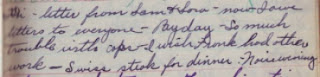 - letter from Sam & Lora - now I owe
letters to everyone - Payday - So much
trouble with car - I wish Hank had other
work - Swiss steak for dinner -